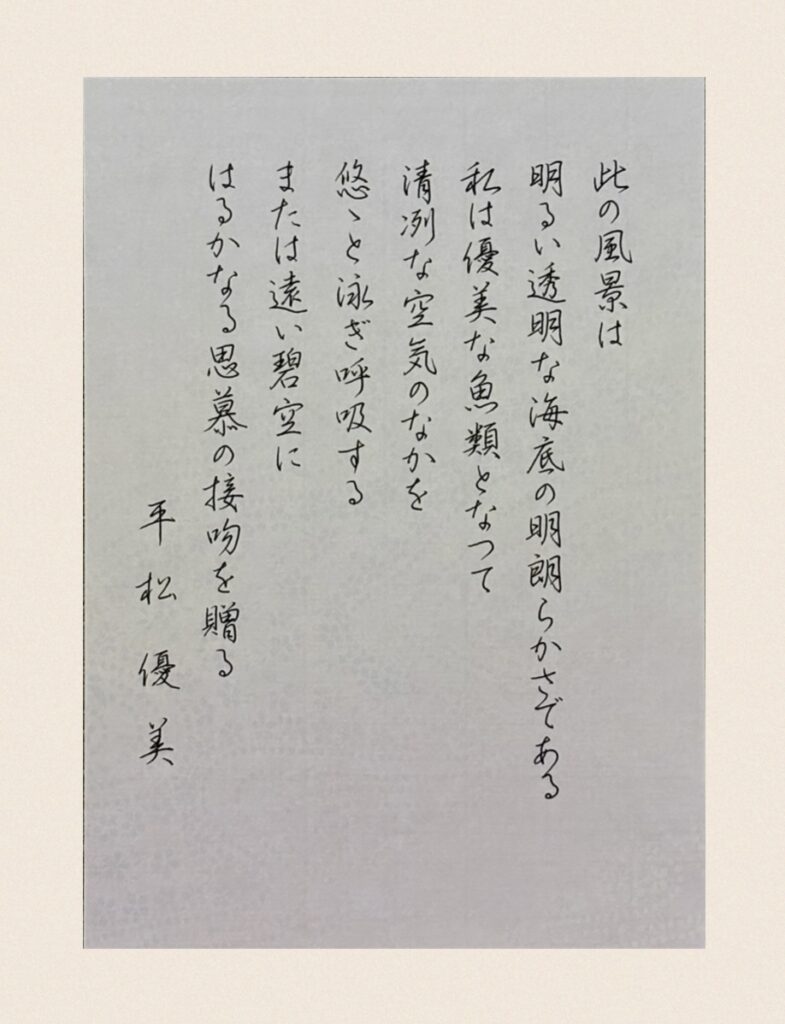 此の風景は
明るい透明な海底の明朗らかさである
私は優美な魚類となつて
清冽な空気のなかを
悠〻と泳ぎ呼吸する
または遠い碧空に
はるかなる思慕の接吻を贈る
平松優美